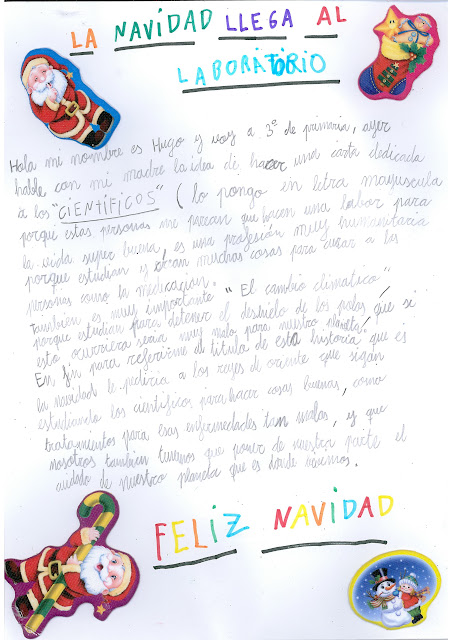 LA NAVIDAD LLEGA AL
LABORATORIO
Hola mi nombre es Hugo y voy a 3º de primaria, ayer
hable con mi madre la idea de hacer una carta dedicada
a los "CIENTÍFICOS" (lo pongo en letra mayuscula
porque estas personas me parecen que hacen una labor para
la vida super buena, es una profesión muy humanitaria
porque estudian y crean muchas cosas para curar a las
personas como la medicación.
También es muy importante "El cambio climatico"
porque estudian para detener el deshielo de los polos, que si
esto ocurriera seria muy malo para nuestro planeta.
En fin para referirme al titulo de esta historia que es
la navidad le pediria a los reyes de oriente que sigan
estudiando los cientificos para hacer cosas buenas, como
tratamientos para esas enfermedades tan malas, y que
nosotros tambien tenemos que poner de nuestra parte el
cuidado de nuestro planeta que es donde vivimos.
FELIZ NAVIDAD